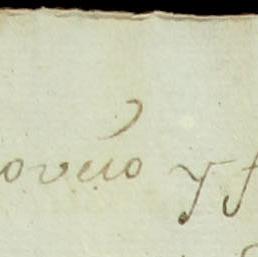 oveio y f